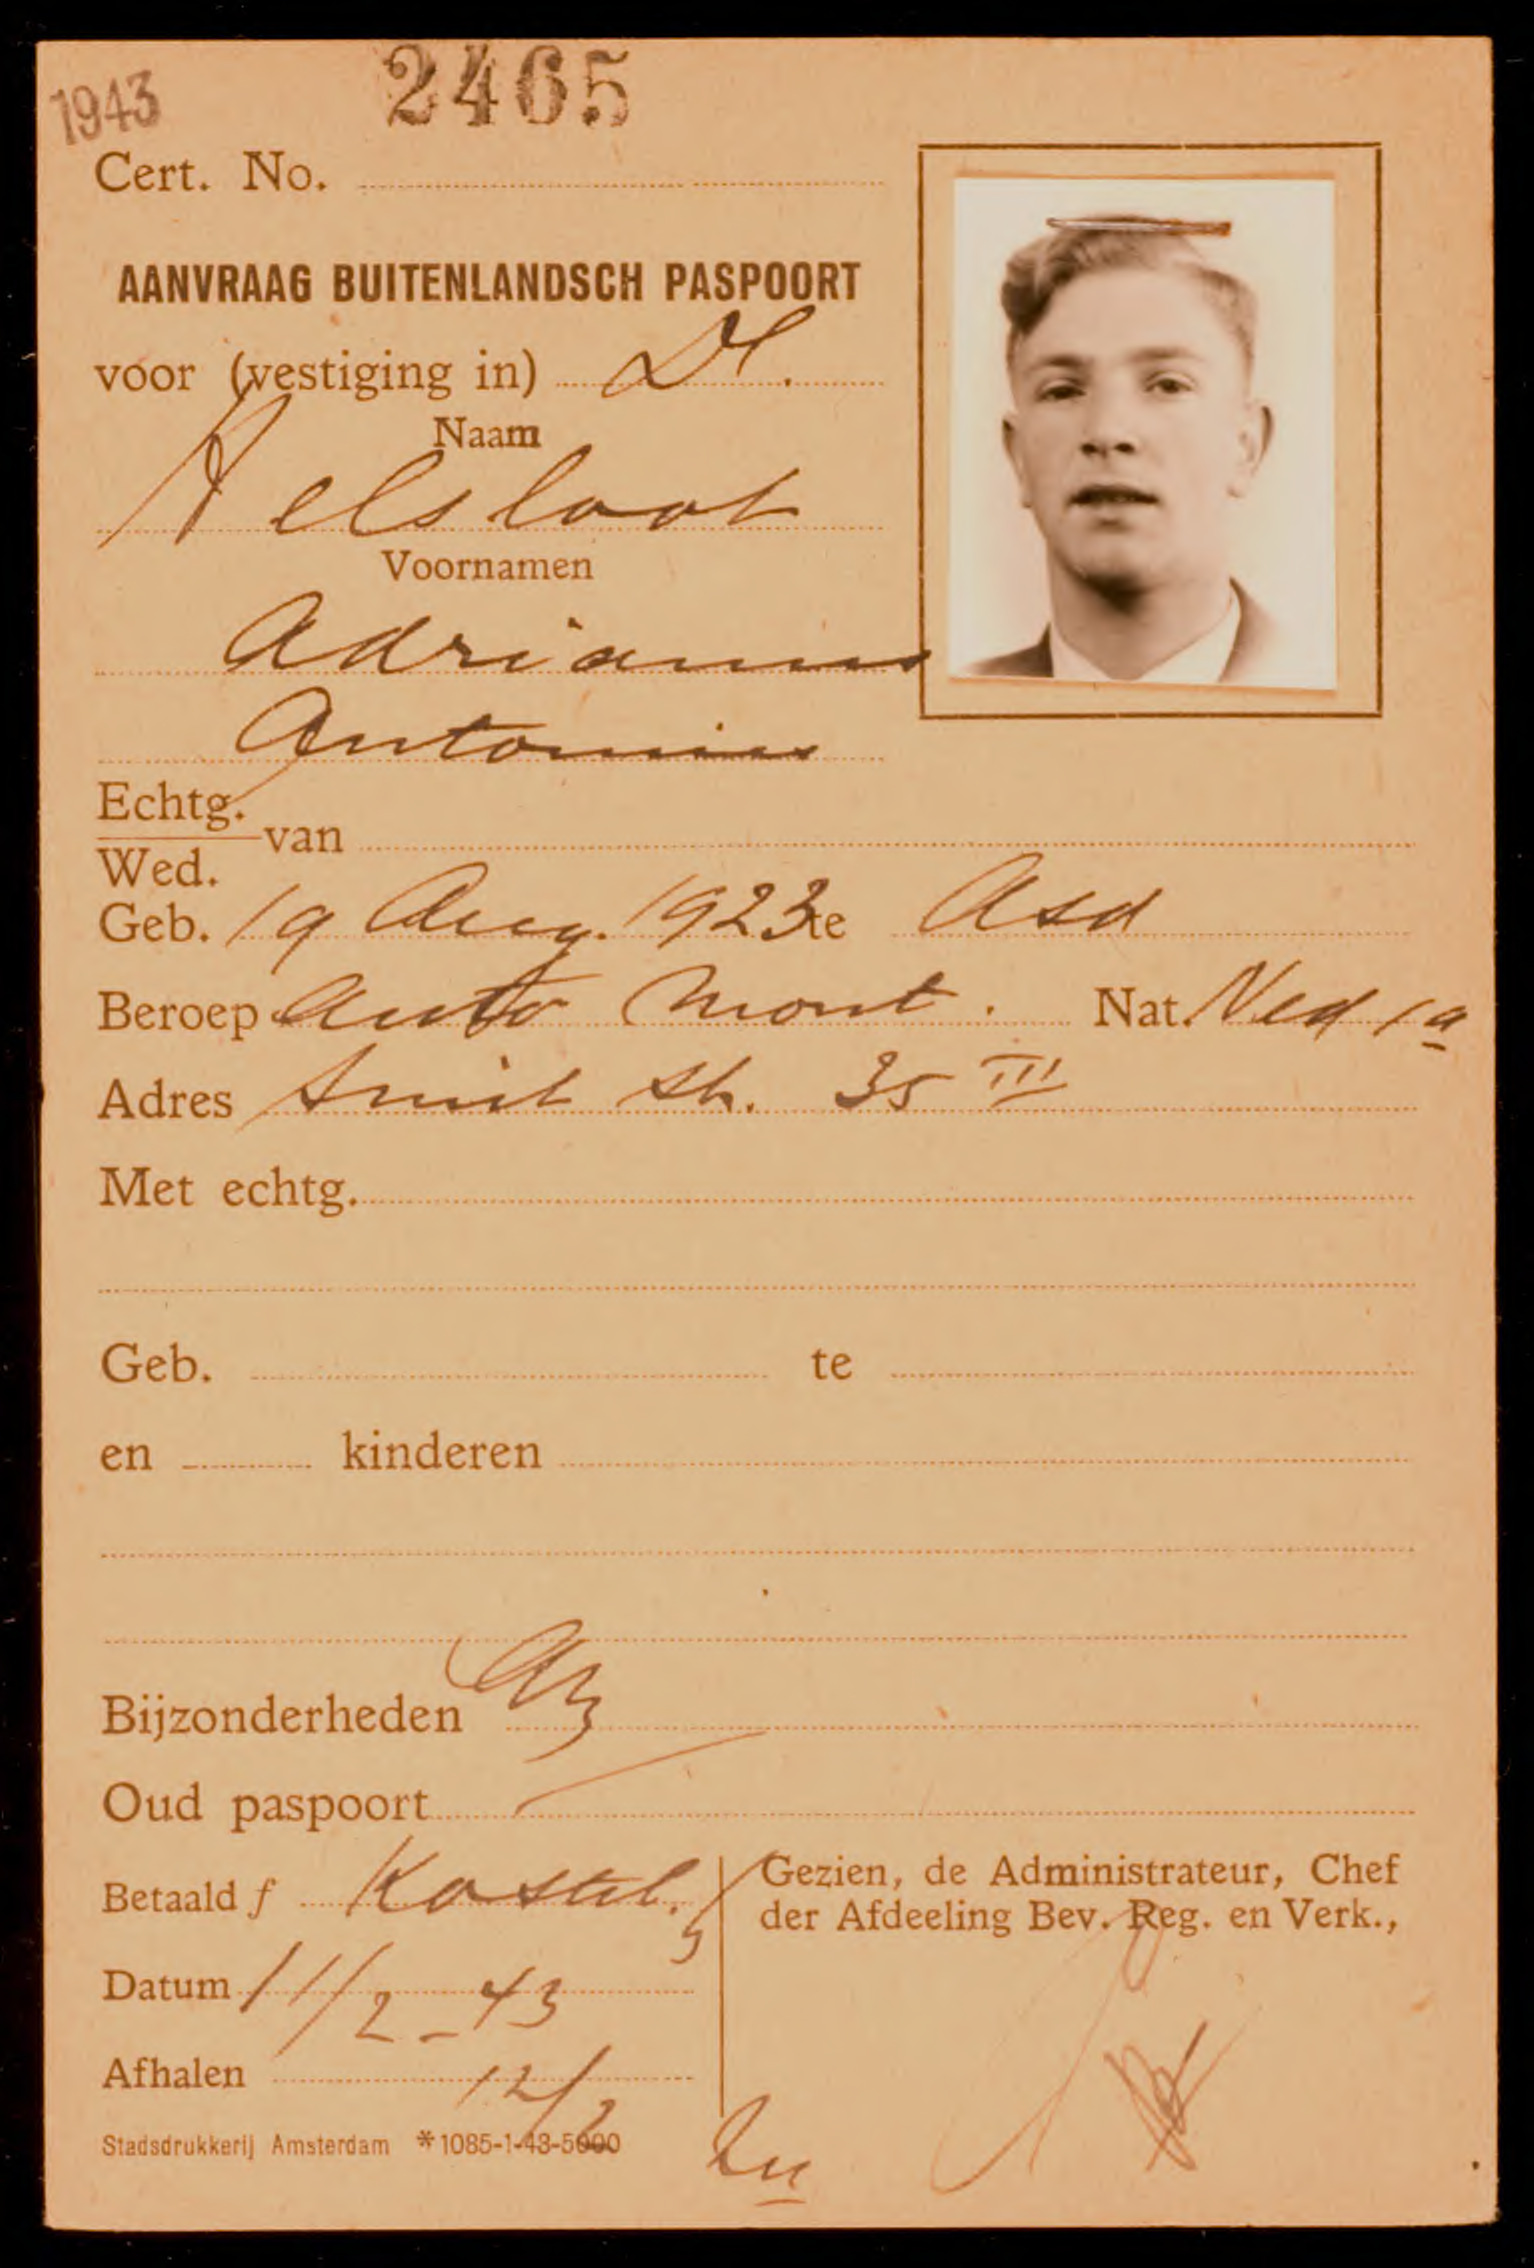 1943
2465
Cert. No.
AANVRAAG BUITENLANDSCH PASPOORT
voor (vestiging in) Dl.
Naam
Aelsloot
Voornamen
Adrianus
Antonius
Echtg.
van
Wed.
Geb. 19 Aug. 1923 te Asd
Beroep auto mont. Nat. Ned 1a
Adres Smit str. 35 III
Met echtg.
Geb. te
en kinderen
Bijzonderheden
Oud paspoort
Betaald f Kostel.
Gezien, de Administrateur, Chef
der Afdeeling Bev. Reg. en Verk.,
Datum 11/2 - 43
Afhalen 12/2
Stadsdrukkerij Amsterdam *1085-1-43-5000